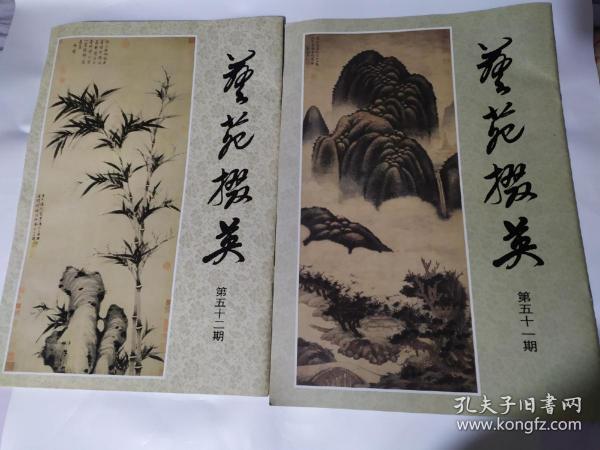 藝苑掇英
第五十二期
藝苑掇英
第五十一期
孔夫子旧书网
www.kongfz.com